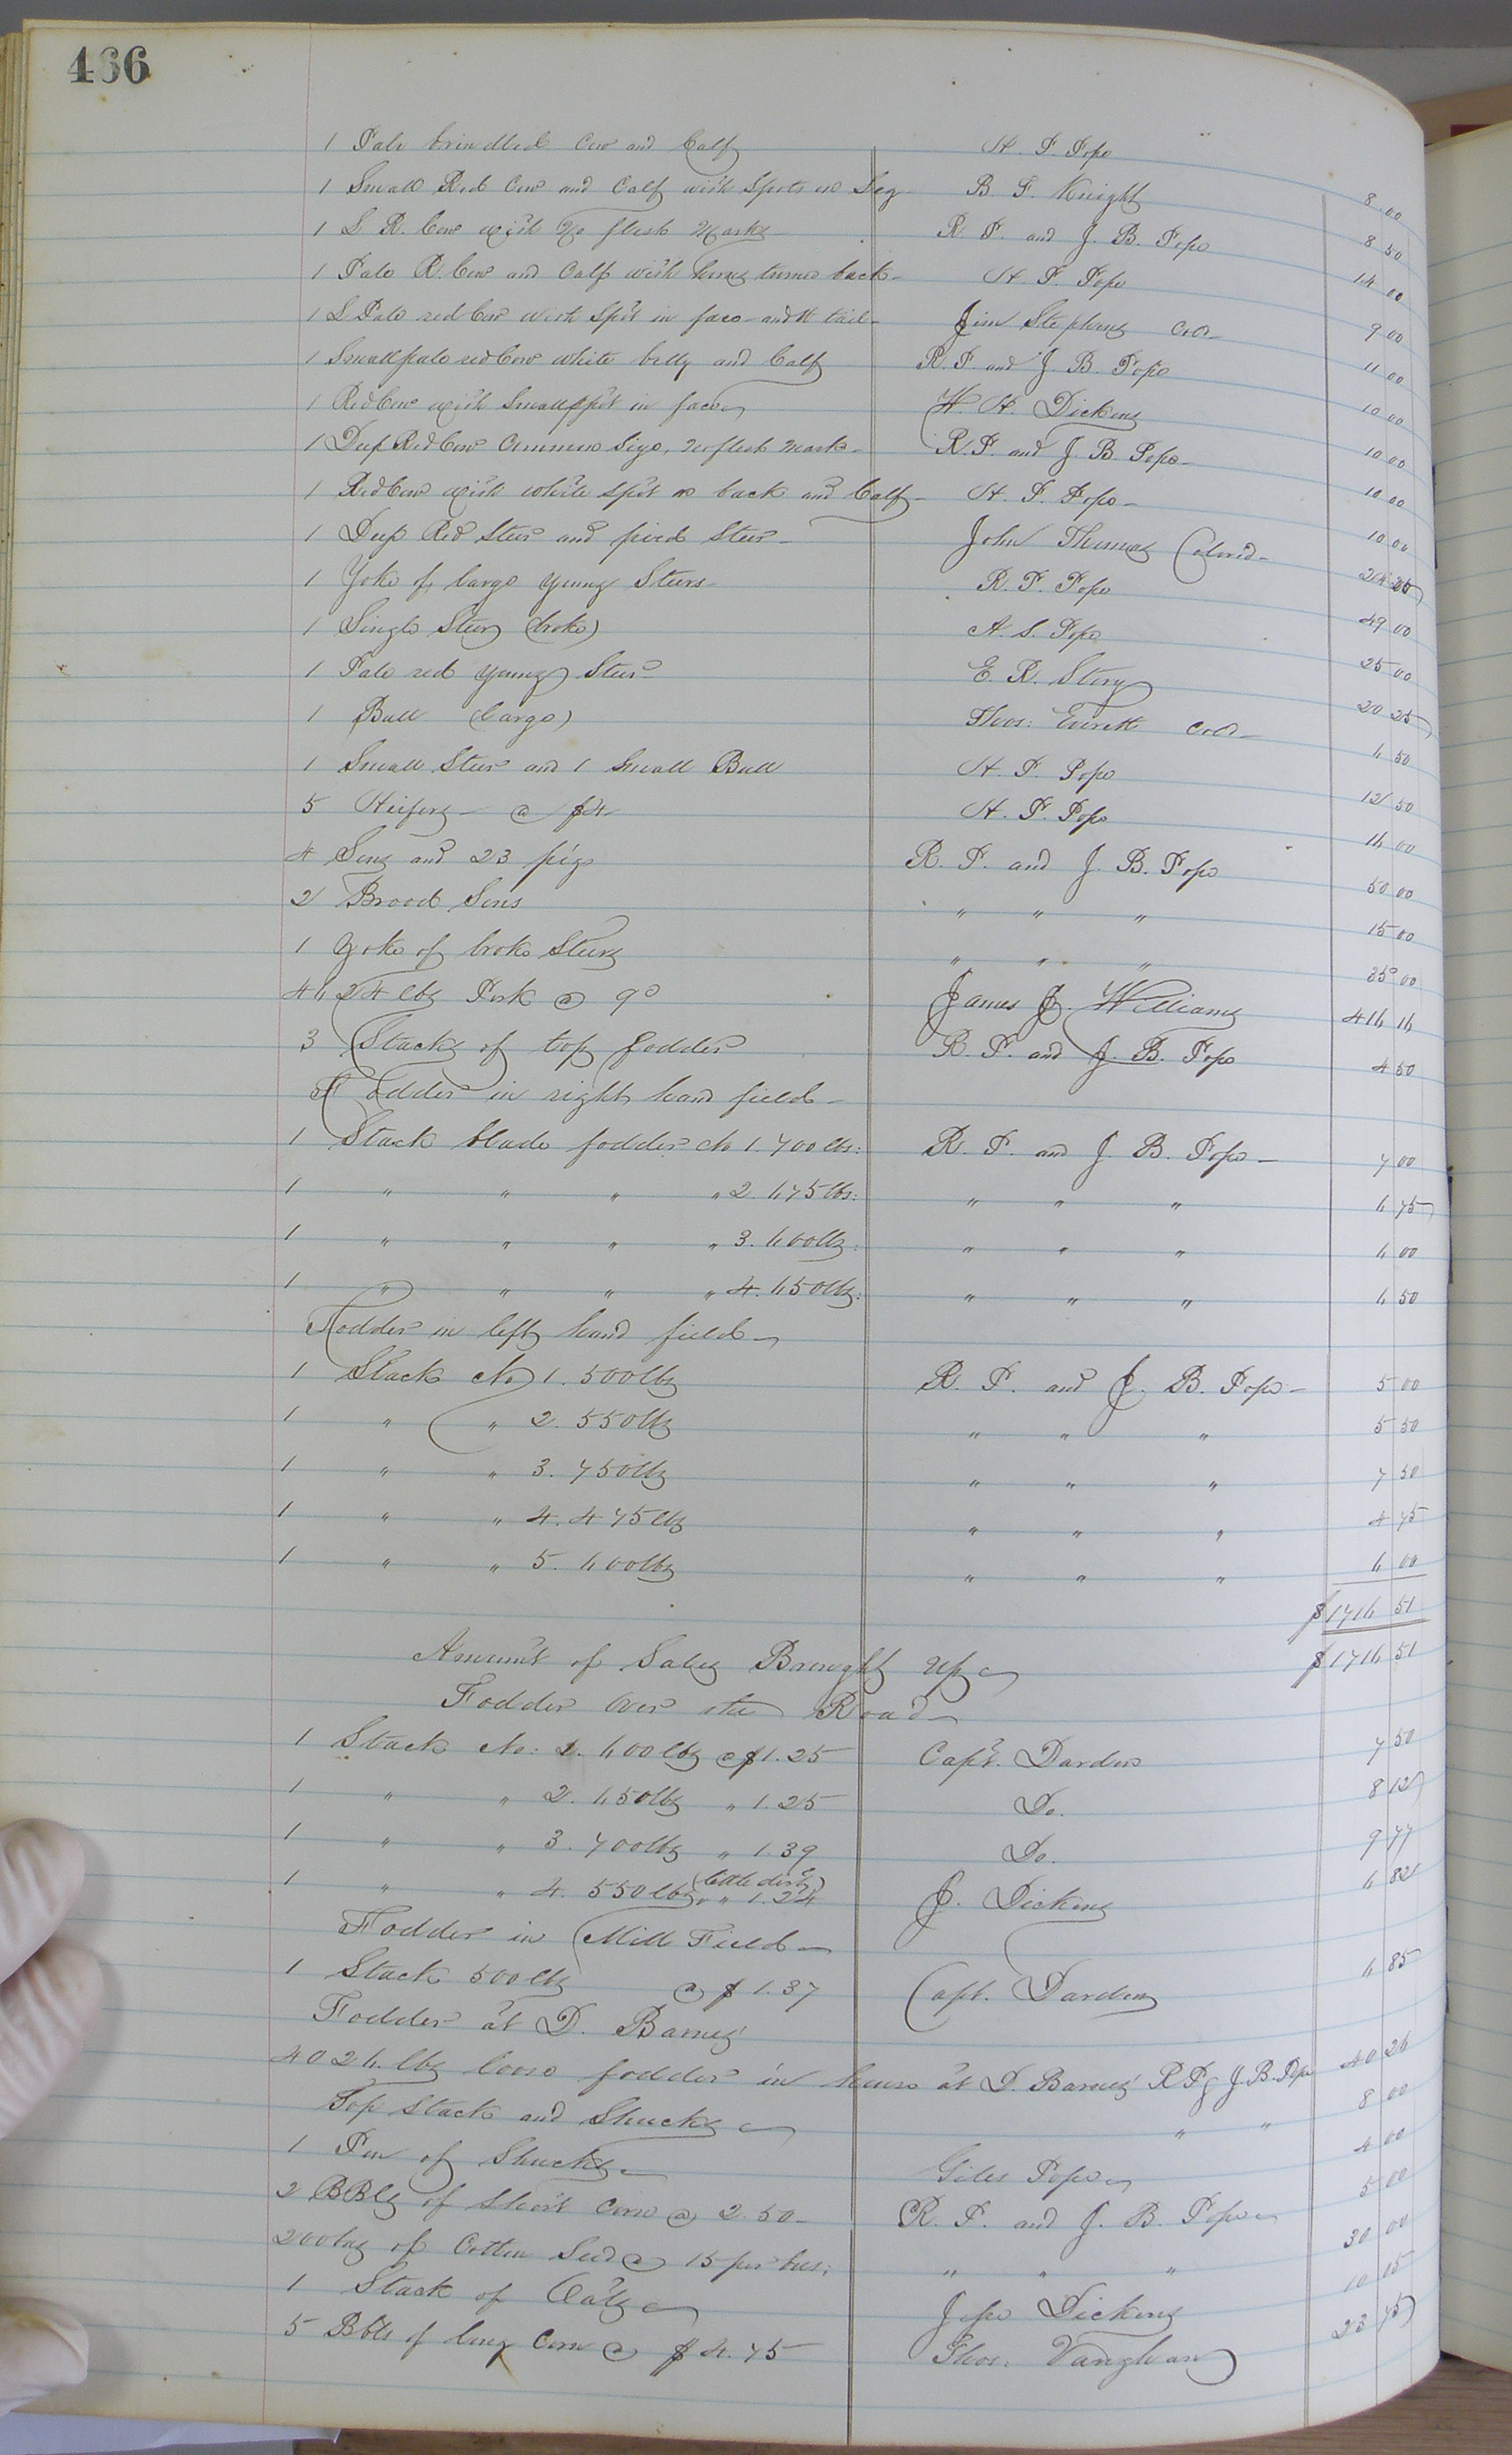 466
1 Pale brindled Cow and Calf H. P. Pope 8.00
1 Small Red Cow and Calf with Spots on Leg B. F. Knight 8 50
1 L R. Cow with No flesh Marks R. P. and J. B. Pope 14 00
1 Pale R. Cow and Calf with horns turned back H. P. Pope 9 00
1 L Pale red Cow with Spot in face and W tail Jim Stephens Cold 11 00
1 Small pale red Cow white belly and Calf R. P. and J. B. Pope 10 00
1 Red Cow with Small spot in face W. H. Dickens 10 00
1 Deep Red Cow Common Size, no flesh mark R. P. and J. B. Pope 10 00
1 Red Cow with white spot on back and Calf H. P. Pope 10 00
1 Deep Red Steer and pied Steer John Thomas Colored 20
1 Yoke of large young Steers R. P. Pope 49 00
1 Single Steer (broke) A. S. Pope 25 00
1 Pale red young Steer E. R. Story 20 25
1 Bull (large) Thos: Everett Cold 6 50
1 Small Steer and 1 Small Bull H. P. Pope 12 50
5 Heifers @ $4 H. P. Pope 00
4 Sows and 23 pigs R. P. and J. B. Pope 50 00
2 Brood Sows " " " 15 00
1 Yoke of broke Steers " " " 35 00
4624 lbs Pork @ 9c James J. Williams 416 16
3 Stacks of top fodder R. P. and J. B. Pope 4 50
Fodder in right hand field
1 Stack blade fodder No 1. 700 lbs: R. P. and J. B. Pope 7 00
1 " " " " 2. 675 lbs: " " " 6 75
1 " " " " 3. 600 lbs: " " " 6 00
1 " " " " 4. 650 lbs: " " " 6 50
Fodder in left hand field
1 Stack No 1. 500 lbs R. P. and J. B. Pope 5 00
1 " " 2. 550 lbs " " " 5 50
1 " " 3. 750 lbs " " " 7 50
1 " " 4. 475 lbs " " " 4 75
1 " " 5. 600 lbs " " " 6 00
$1716 51
Amount of Sales Brought up $1716 51
Fodder Over the Road
1 Stack No: 1. 600 lbs @ $1.25 Capt. Darden 7 50
1 " " 2. 650 lbs " 1.25 Do. 8 12
1 " " 3. 700 lbs " 1.39 Do. 9 77
1 " " 4. 550 lbs (little dirty) " 1.24 J. Dickens 6 82
Fodder in Mill Field
1 Stack 500 lbs @ $ 1.37 Capt. Darden 6 85
Fodder at D. Barnes'
4026 lbs loose fodder in house at D. Barnes' R P & J. B. Pope 40 26
Top Stack and Shucks " " 8 00
1 Pen of Shucks Giles Pope 4 00
2 BBls of Short Corn @ 2.50 R. P. and J. B. Pope 5 00
200 bus of Cotton Seed @ 15 per bus: " " " 30 00
1 Stack of Oats Jesse Dickens 10 15
5 Bbls of long Corn @ $ 4.75 Thos: Vaughan 23 75